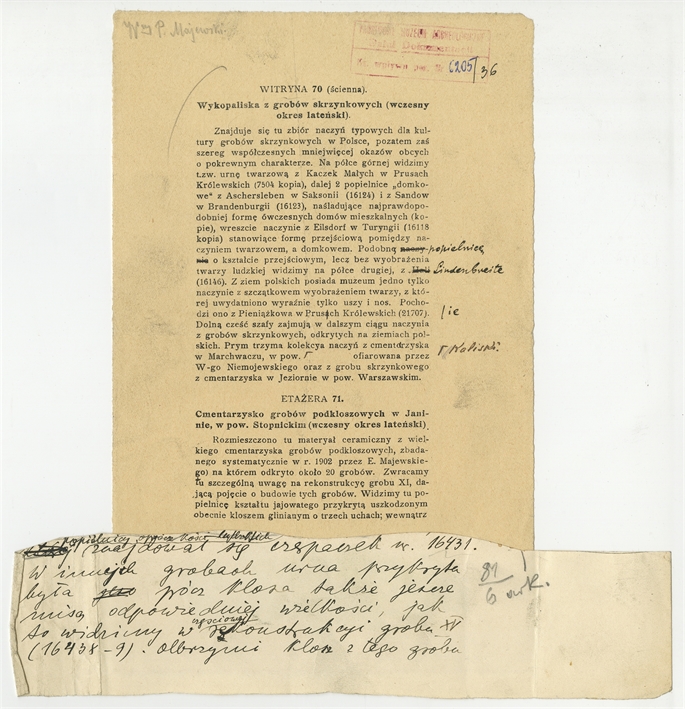 W-wa P. Majewski.
PAŃSTWOWE MUZEUM ARCHEOLOGICZNE
Dział Dokumentacji
Nr. 6205/36
WITRYNA 70 (ścienna).
Wykopaliska z grobów skrzynkowych (wczesny
okres lateński).
Znajduje się tu zbiór naczyń typowych dla kul-
tury grobów skrzynkowych w Polsce, pozatem zaś
szereg współczesnych mniejwięcej okazów obcych
o pokrewnym charakterze. Na półce górnej widzimy
t.zw. urnę twarzową z Kaczek Małych w Prusach
Królewskich (7504 kopia), dalej 2 popielnice „domko-
we" z Aschersleben w Saksonii (16124) i z Sandow
w Brandenburgii (16123), naśladujące najprawdopo-
dobniej formę ówczesnych domów mieszkalnych (ko-
pie), wreszcie naczynie z Eilsdorf w Turyngii (16118
kopia) stanowiące formę przejściową pomiędzy na-
czyniem twarzowem, a domkowem. Podobną naczy- popielnicę
nie o kształcie przejściowym, lecz bez wyobrażenia
twarzy ludzkiej widzimy na półce drugiej, z Lindenbreite
(16146). Z ziem polskich posiada muzeum jedno tylko
naczynie z szczątkowem wyobrażeniem twarzy, z któ-
rej uwydatniono wyraźnie tylko uszy i nos. Pocho-
dzi ono z Pieniążkowa w Prusach Królewskich (21707).
Dolną cześć szafy zajmują w dalszym ciągu naczynia /ie
z grobów skrzynkowych, odkrytych na ziemiach pol-
skich. Prym trzyma kolekcya naczyń z cmentarzyska
w Marchwaczu, w pow. Γ ofiarowana przez Γ Kaliski.
W-go Niemojewskiego oraz z grobu skrzynkowego
z cmentarzyska w Jeziornie w pow. Warszawskim.
ETAŻERA 71.
Cmentarzysko grobów podkloszowych w Jani-
nie, w pow. Stopnickim (wczesny okres lateński)
Rozmieszczono tu materyał ceramiczny z wiel-
kiego cmentarzyska grobów podkloszowych, zbada-
nego systematycznie w r. 1902 przez E. Majewskie-
go) na którem odkryto około 20 grobów. Zwracamy
tu szczególną uwagę na rekonstrukcyę grobu XI, da-
jącą pojęcie o budowie tych grobów. Widzimy tu po-
pielnicę kształtu jajowatego przykrytą uszkodzonym
obecnie kloszem glinianym o trzech uchach; wewnątrz
popielnicy oprócz kości ludzkich
znajdował się czerpaczek nr. 16431.
W innych grobach urna przykryta
była prócz klosza także jeszcze
misą odpowiedniej wielkości, jak
to widzimy w częściowej rekonstrukcyi grobu XV
(16438-9). Olbrzymi klosz z tego grobu
81/6 ark.